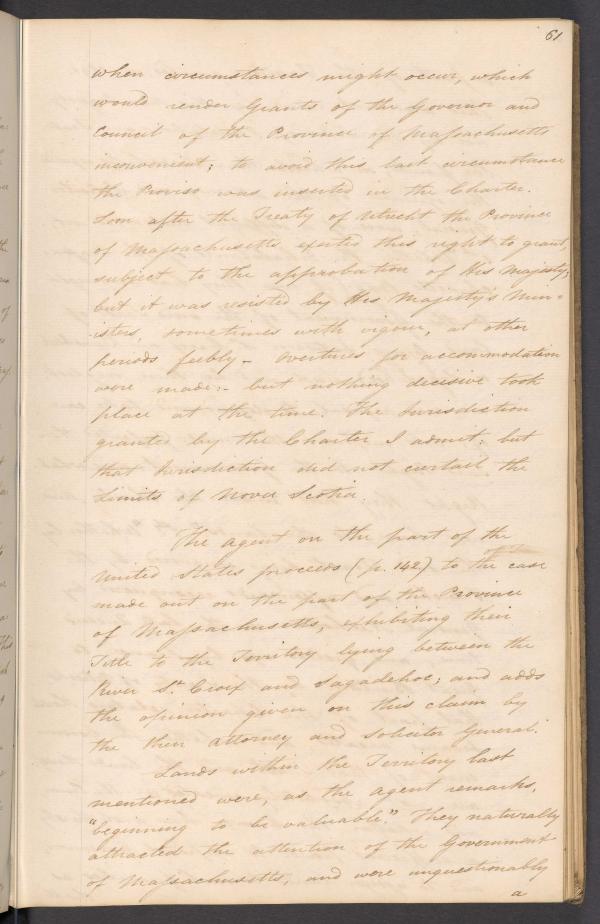 61
when circumstances might occur, which
would render Grants of the Governor and
Council of the Province of Massachusetts
inconvenient; to avoid this last circumstance
the Proviso was inserted in the Charter.
Soon after the Treaty of Utrecht the Province
of Massachusetts exerted this right to grant,
subject to the approbation of His Majesty;
but it was resisted by His Majesty's Min-
-isters, sometimes with vigour, at other
periods feebly - overtures for accommodation
were made:- but nothing decisive took
place at the time. The Jurisdiction
granted by the Charter I admit: but
that Jurisdiction did not curtail the
Limits of Nova Scotia.
The agent on the part of the
United States proceeds (p. 142) to the case
made out on the part of the Province
of Massachusetts, exhibiting their
Title to the Territory lying between the
River St. Croix and Sagadehoc; and adds
the opinion given on this claim by
the then Attorney and Solicitor General.
Lands within the Territory last
mentioned were, as the agent remarks,
"beginning to be valuable." They naturally
attracted the attention of the Government
of Massachusetts, and were unquestionably
a